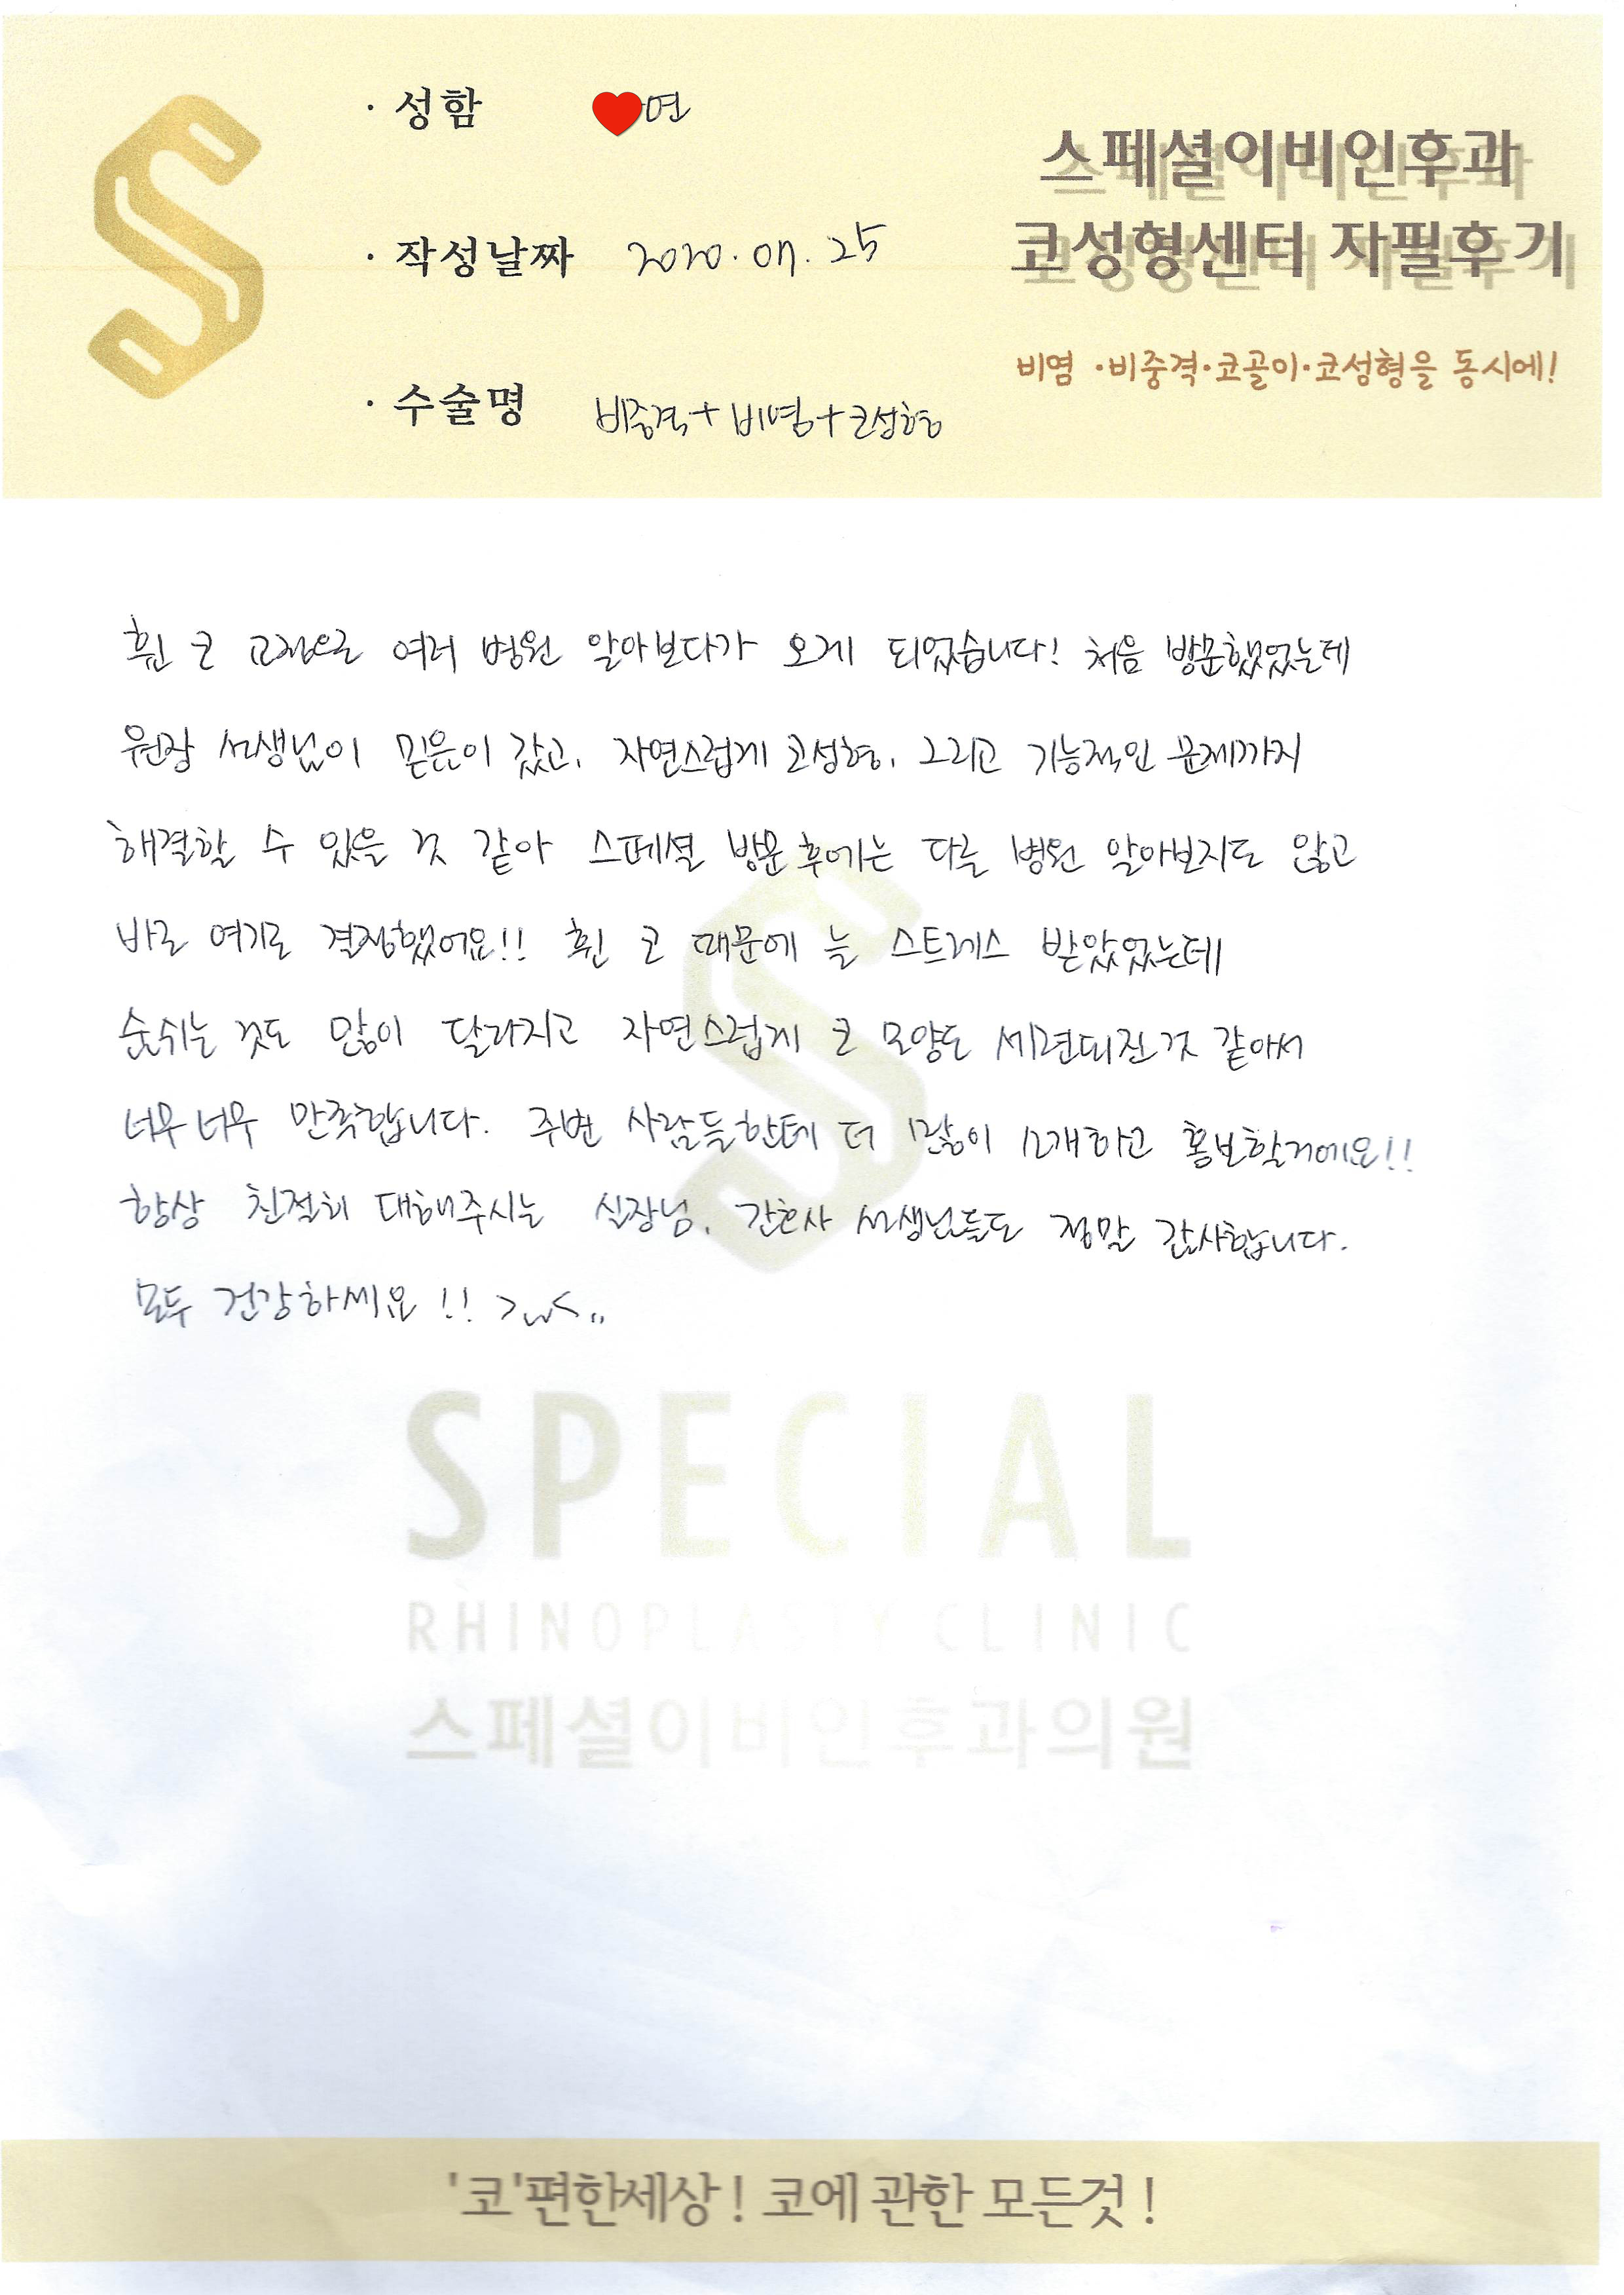 · 성함 ❤연
스페셜이비인후과
코성형센터 자필후기
· 작성날짜 2020. 07. 25
비염 ·비중격·코골이·코성형을 동시에!
· 수술명 비중격+비염+코성형
휜 코 교정으로 여러 병원 알아보다가 오게 되었습니다! 처음 방문했었는데
원장 선생님이 믿음이 갔고, 자연스럽게 코성형, 그리고 기능적인 문제까지
해결할 수 있을 것 같아 스페셜 방문 후에는 다른 병원 알아보지도 않고
바로 여기로 결정했어요!! 휜 코 때문에 늘 스트레스 받았었는데
숨쉬는 것도 많이 달라지고 자연스럽게 코 모양도 세련되진것 같아서
너무너무 만족합니다. 주변 사람들한테 더 많이 소개하고 홍보할거에요!!
항상 친절히 대해주시는 실장님, 간호사 선생님들도 정말 감사합니다.
모두 건강하세요 !! >_<..
SPECIAL
RHINOPLASTY CLINIC
스페셜이비인후과의원
'코'편한세상! 코에 관한 모든것!